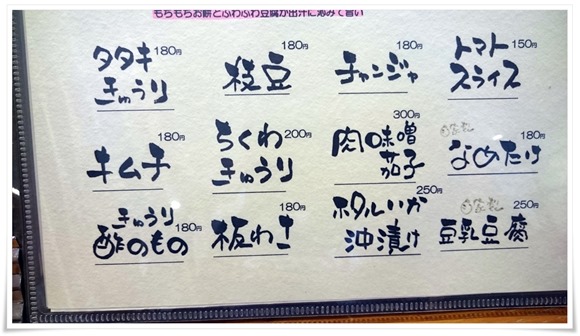 もちもちお餅とふわふわ豆腐が出汁に沁みて旨い
タタキきゅうり 180円
枝豆 180円
チャンジャ 180円
トマトスライス 150円
キムチ 180円
ちくわきゅうり 200円
肉味噌茄子 300円
自家製 なめたけ 180円
きゅうり酢のもの 180円
板わさ 180円
ホタルいか沖漬け 250円
自家製 豆乳豆腐 250円